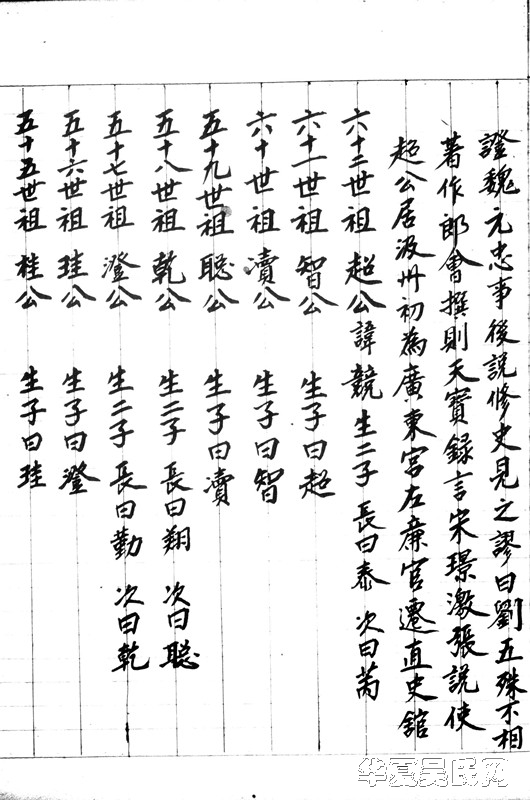 證魏元忠事後説修史見之謬曰劉五殊不相
著作郎會撰則天實錄言宋璟激張説使
超公居汲州初為廣東宮左亷官遷直史舘
六十二世祖 超公諱競 生二子 長曰泰 次曰芮
六十一世祖 智公 生子曰超
六十世祖 瀆公 生子曰智
五十九世祖 聪公 生子曰瀆
五十八世祖 乾公 生二子 長曰翔 次曰聪
五十七世祖 澄公 生二子 長曰勤 次曰乾
五十六世祖 珪公 生子曰澄
五十五世祖 桂公 生子曰珪
华夏吴氏网